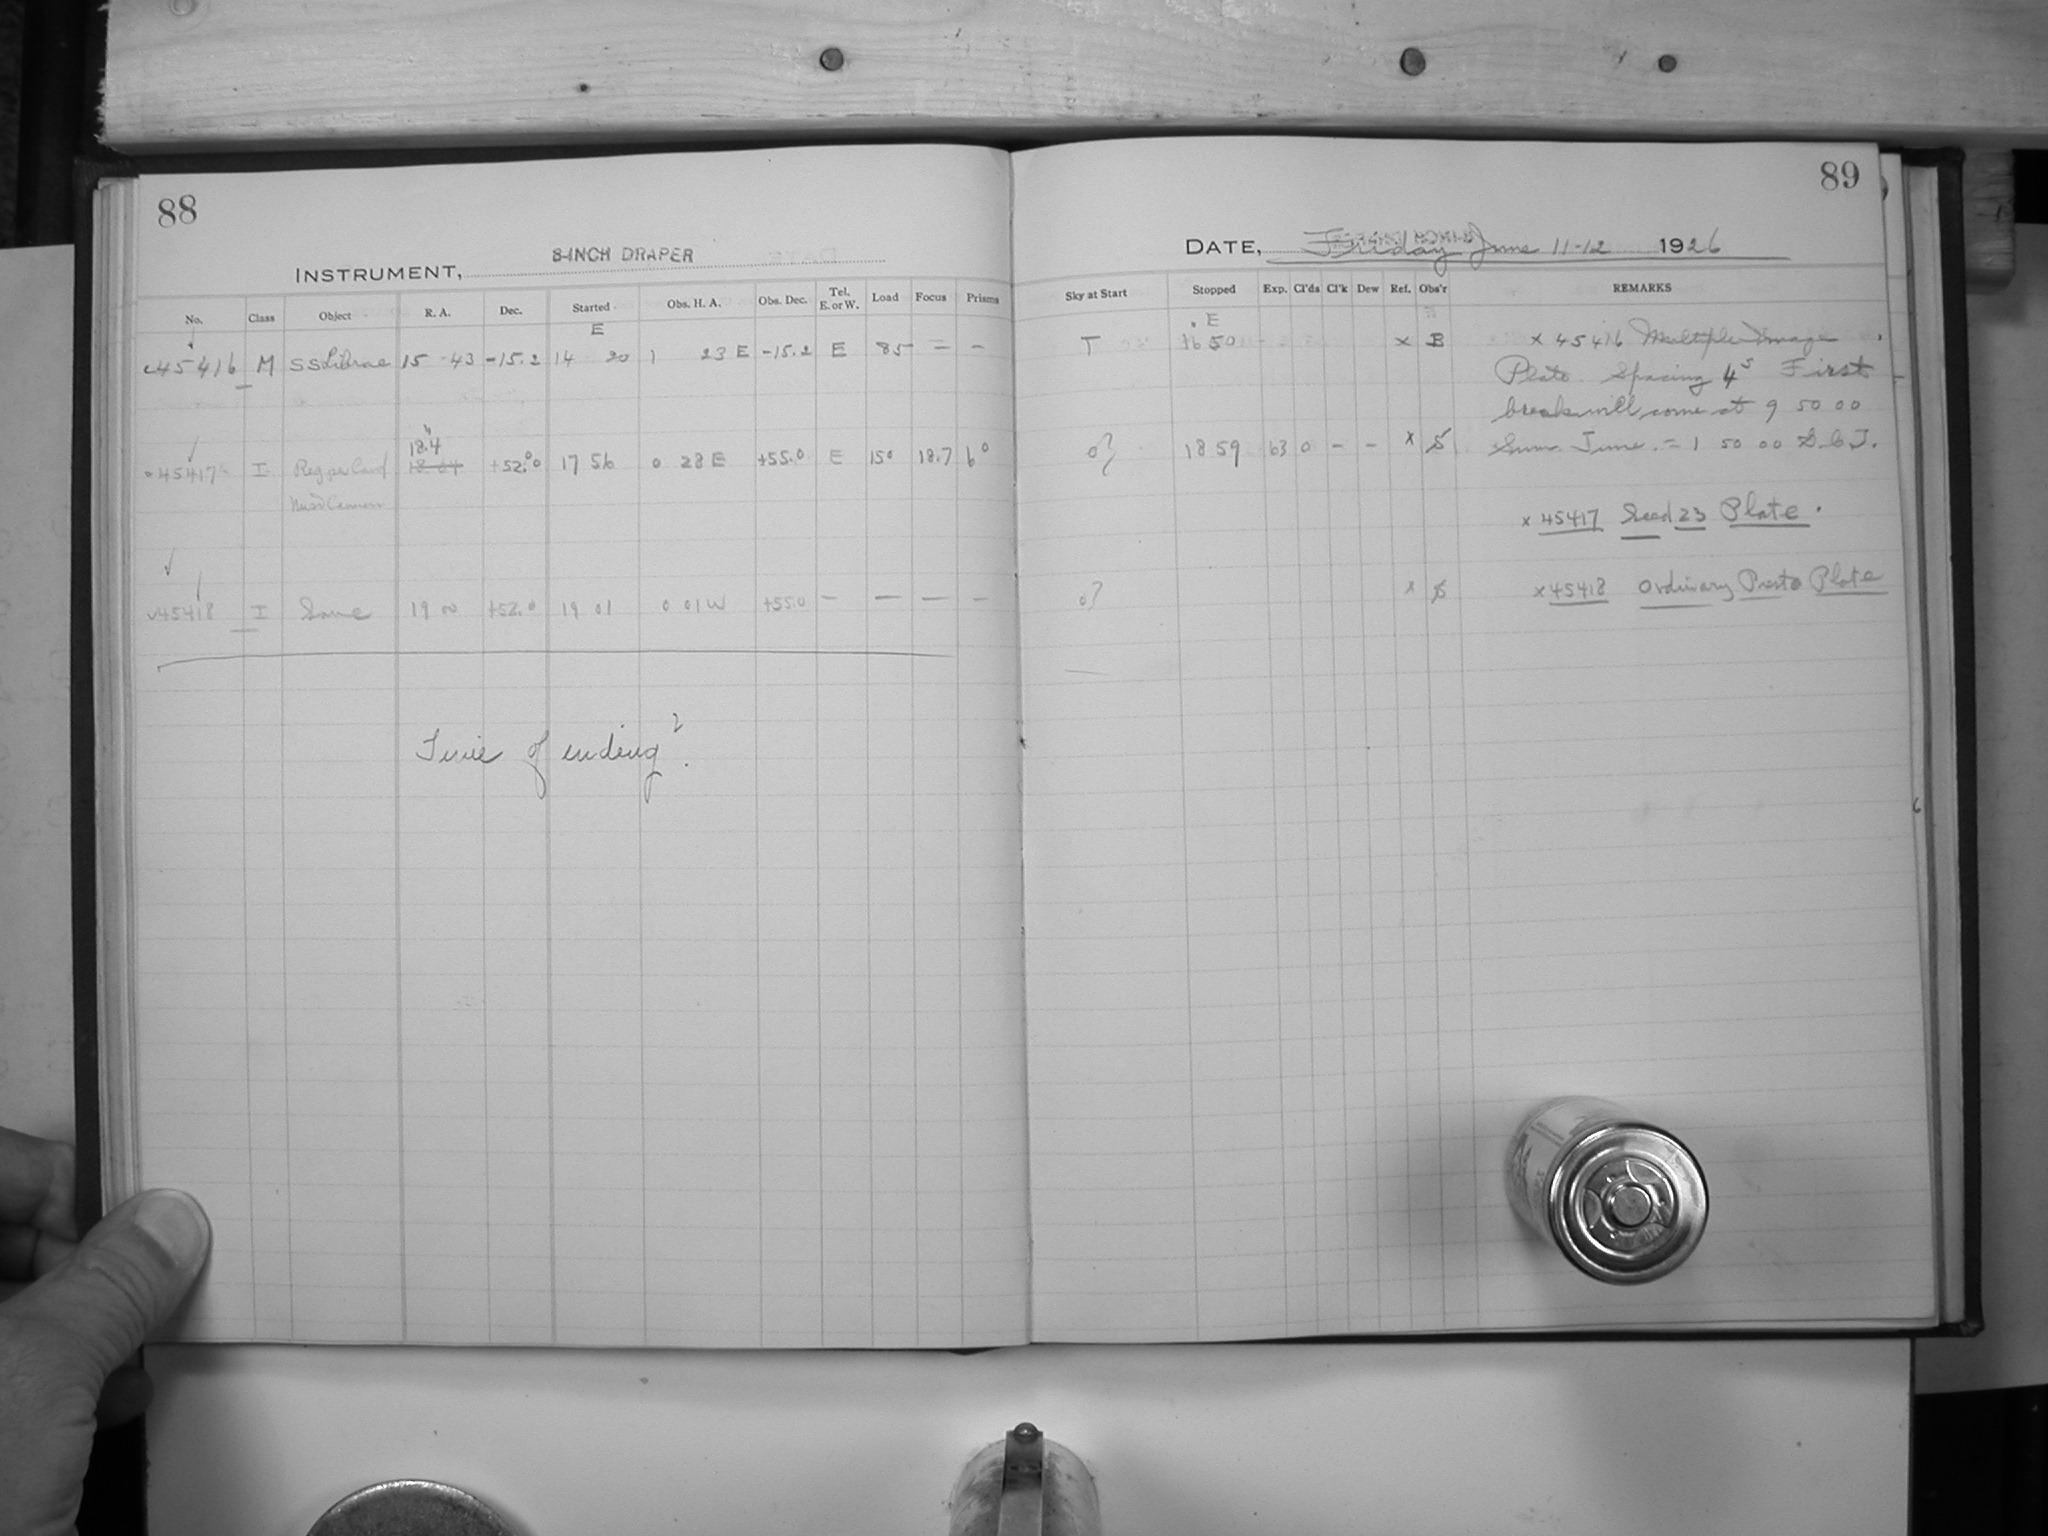 88
INSTRUMENT, 8-INCH DRAPER
No. Class Object R. A. Dec. Started Obs. H. A. Obs. Dec. Tel. E. or W. Load Focus Prisms
E
45416 M SS Librae 15 43 -15.2 14 20 1 23 E -15.2 E 85 — —
18.4
45417 I Reg per Card 18 04 +52.0 17 56 0 28 E +55.0 E 150 18.7 6°
Miss Cannon
45418 I Same 19 00 +52.0 19 01 0 01 W +55.0 — — — —
Time of ending?
89
DATE, Friday June 11-12 1926
Sky at Start Stopped Exp. Cl'ds Cl'k Dew Ref. Obs'r REMARKS
E
T 16 50 x B x 45416 Multiple Image
Plate. Spacing 4s First
break will come at 9 50 00
18 59 63 0 - - x S Sum. Time. = 1 50 00 G.C.T.
x 45417 Seed 23 Plate.
x S x 45418 Ordinary Presto Plate